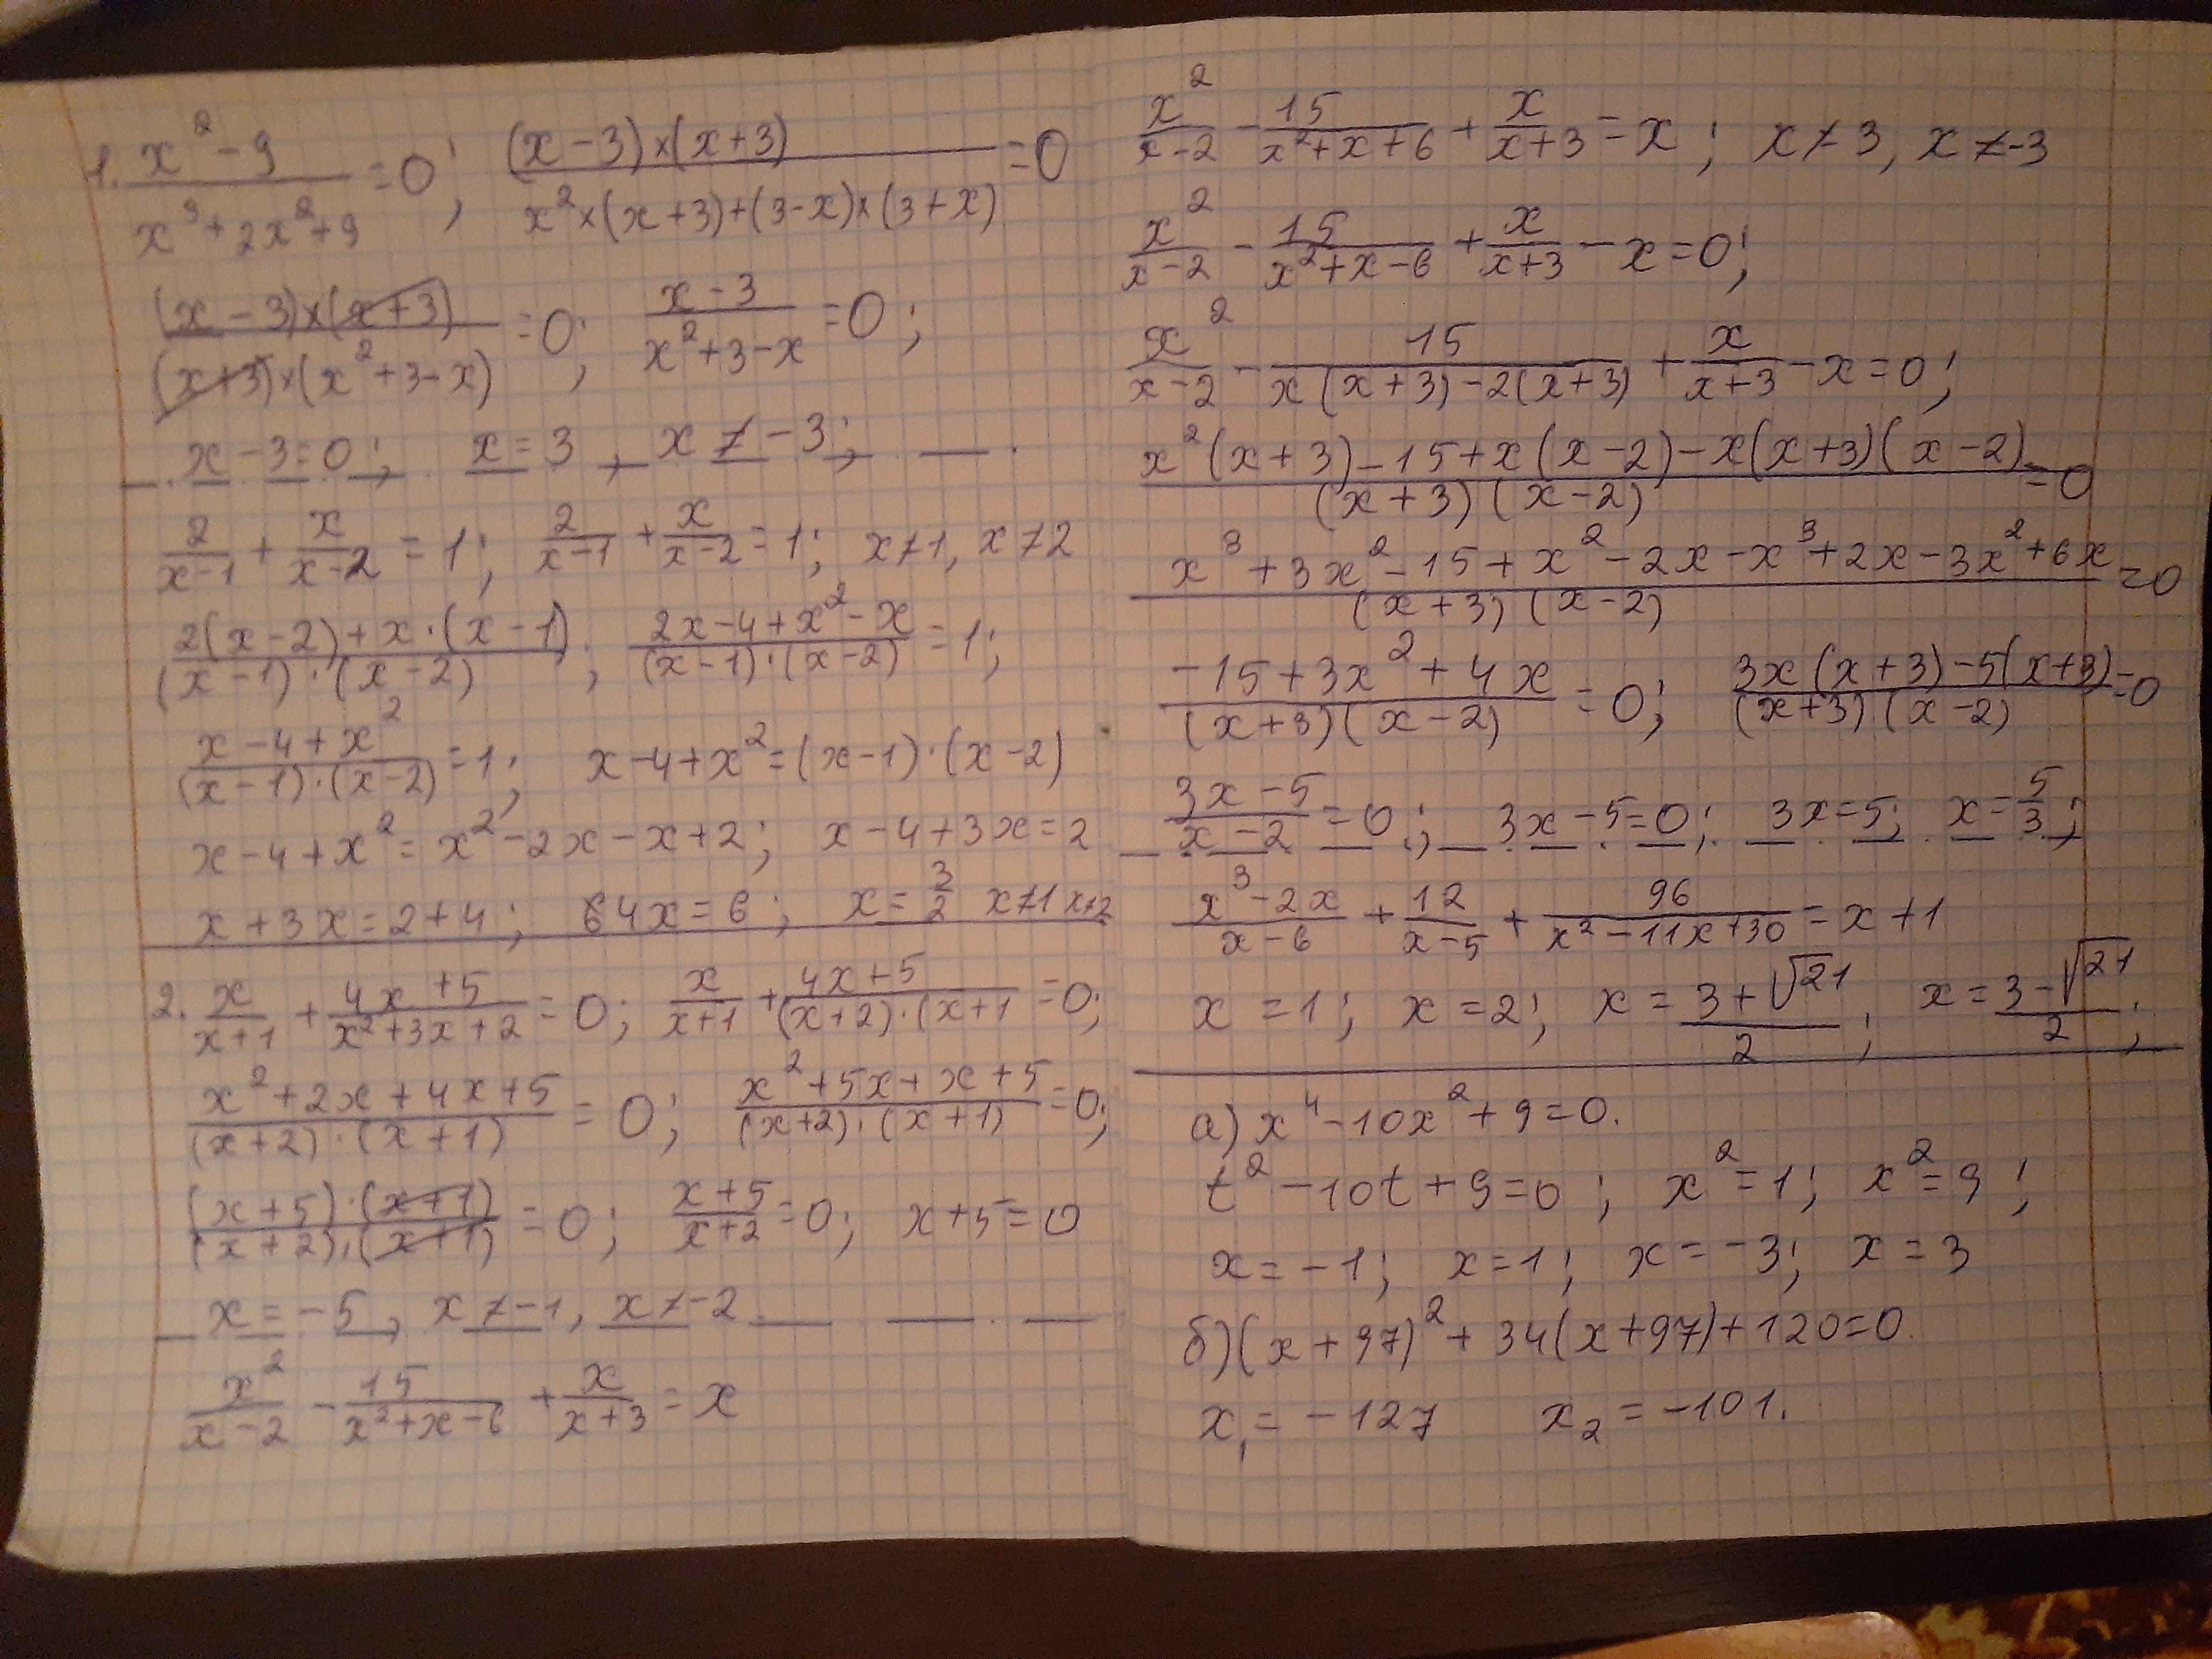 1. (x² - 9)/(x³ + 2x² + 9) = 0; ((x - 3)×(x + 3))/(x²×(x + 3) + (3 - x)×(3 + x)) = 0
((x - 3)×(x + 3))/((x + 3)×(x² + 3 - x)) = 0; (x - 3)/(x² + 3 - x) = 0;
x - 3 = 0; x = 3, x ≠ -3;
2/(x - 1) + x/(x - 2) = 1; 2/(x - 1) + x/(x - 2) = 1; x ≠ 1, x ≠ 2
(2(x - 2) + x·(x - 1))/((x - 1)·(x - 2)); (2x - 4 + x² - x)/((x - 1)·(x - 2)) = 1;
(x - 4 + x²)/((x - 1)·(x - 2)) = 1; x - 4 + x² = (x - 1)·(x - 2)
x - 4 + x² = x² - 2x - x + 2; x - 4 + 3x = 2
x + 3x = 2 + 4; 4x = 6; x = 3/2 x ≠ 1 x ≠ 2
2. x/(x + 1) + (4x + 5)/(x² + 3x + 2) = 0; x/(x + 1) + (4x + 5)/((x + 2)·(x + 1 = 0;
(x² + 2x + 4x + 5)/((x + 2)·(x + 1)) = 0; (x² + 5x + x + 5)/((x + 2)·(x + 1)) = 0;
((x + 5)·(x + 1))/((x + 2)·(x + 1)) = 0; (x + 5)/(x + 2) = 0; x + 5 = 0
x = -5, x ≠ -1, x ≠ -2
x²/(x - 2) - 15/(x² + x - 6) + x/(x + 3) = x
x²/(x - 2) - 15/(x² + x + 6) + x/(x + 3) = x; x ≠ 3, x ≠ -3
x²/(x - 2) - 15/(x² + x - 6) + x/(x + 3) - x = 0;
x²/(x - 2) - 15/(x(x + 3) - 2(x + 3)) + x/(x + 3) - x = 0;
(x²(x + 3) - 15 + x(x - 2) - x(x + 3)(x - 2))/((x + 3)(x - 2)) = 0
(x³ + 3x² - 15 + x² - 2x - x³ + 2x - 3x² + 6x)/((x + 3)(x - 2)) = 0
(-15 + 3x² + 4x)/((x + 3)(x - 2)) = 0; (3x(x + 3) - 5(x + 3))/((x + 3)(x - 2)) = 0
(3x - 5)/(x - 2) = 0; 3x - 5 = 0; 3x = 5; x = 5/3;
(x³ - 2x)/(x - 6) + 12/(x - 5) + 96/(x² - 11x + 30) = x + 1
x = 1; x = 2; x = (3 + √21)/2; x = (3 - √21)/2;
а) x⁴ - 10x² + 9 = 0.
t² - 10t + 9 = 0; x² = 1; x² = 9;
x = -1; x = 1; x = -3; x = 3
б) (x + 97)² + 34(x + 97) + 120 = 0.
x₁ = -127 x₂ = -101.